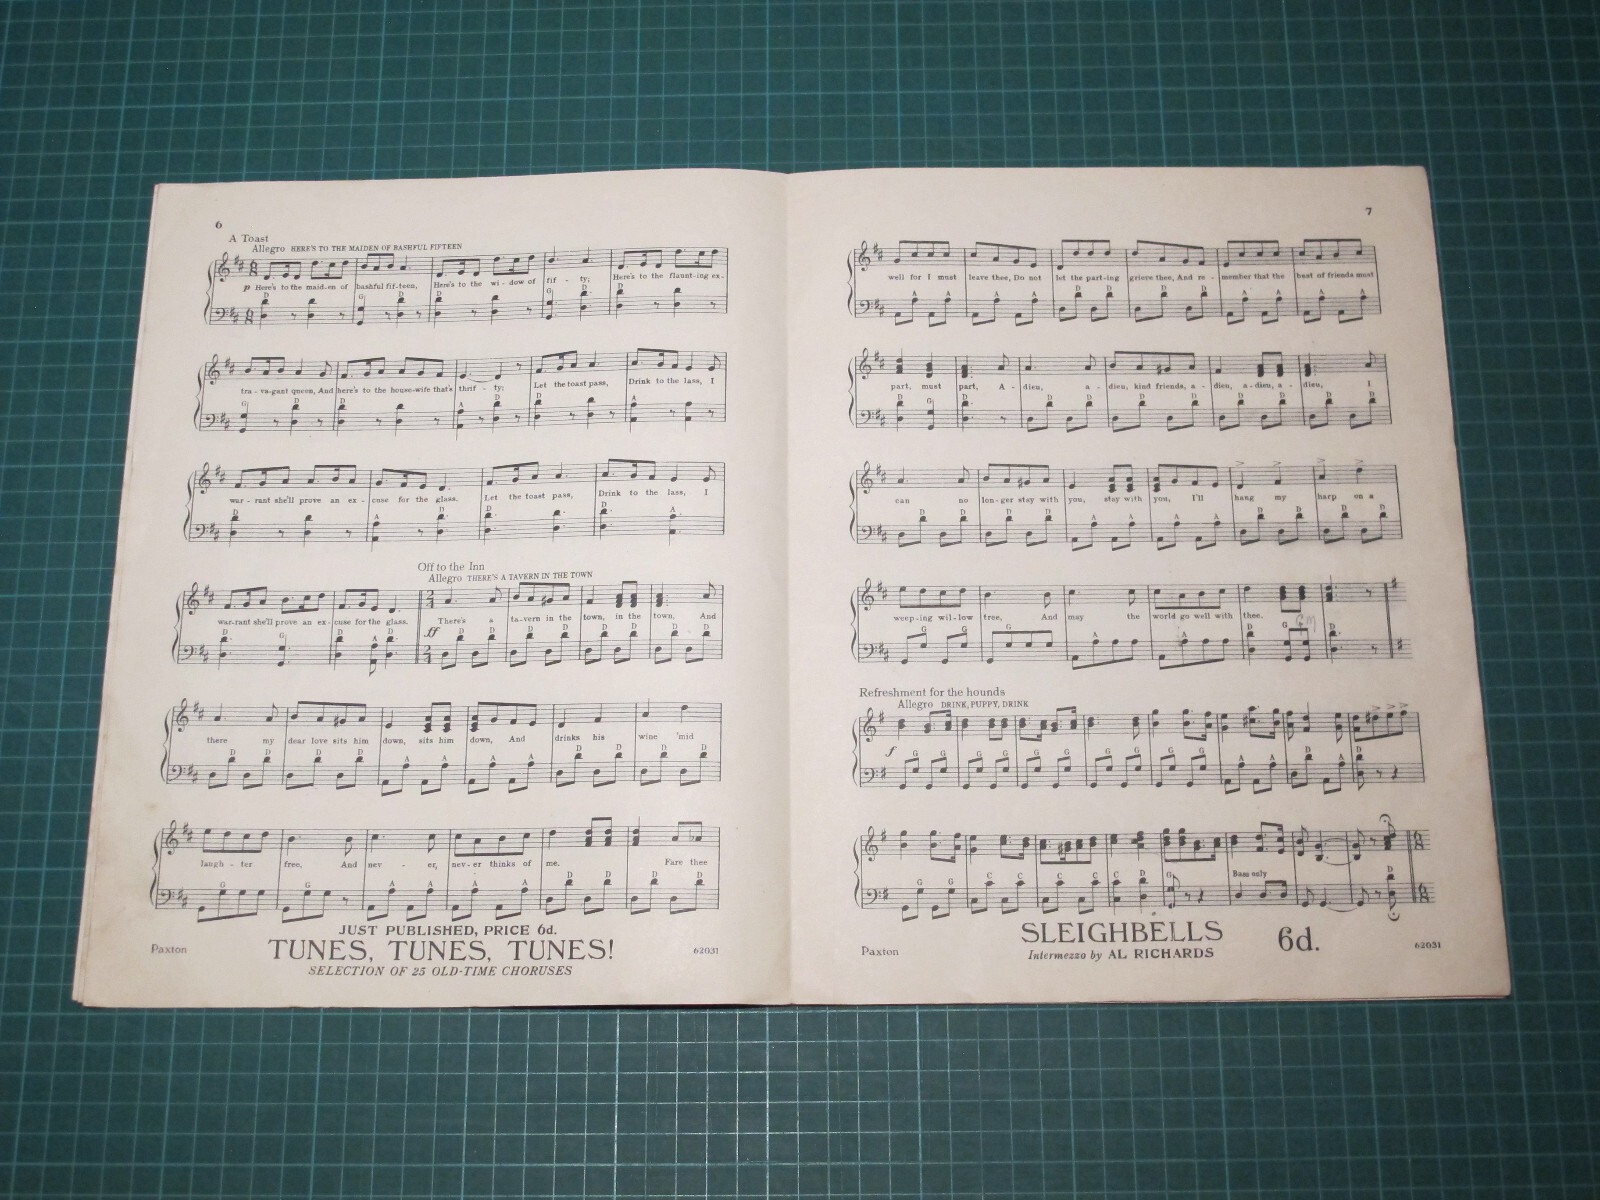 6
A Toast
Allegro HERE'S TO THE MAIDEN OF BASHFUL FIFTEEN
p Here's to the maid-en of bashful fif-teen, Here's to the wi-dow of fif-ty; Here's to the flaunt-ing ex-
tra-va-gant queen, And here's to the house-wife that's thrif-ty; Let the toast pass, Drink to the lass, I
war-rant she'll prove an ex-cuse for the glass. Let the toast pass, Drink to the lass, I
Off to the Inn
Allegro THERE'S A TAVERN IN THE TOWN
war-rant she'll prove an ex-cuse for the glass. There's a ta-vern in the town, in the town, And
ff
there my dear love sits him down, sits him down, And drinks his wine 'mid
laugh-ter free, And nev-er, nev-er thinks of me. Fare thee
JUST PUBLISHED, PRICE 6d.
Paxton TUNES, TUNES, TUNES! 62031
SELECTION OF 25 OLD-TIME CHORUSES
7
well for I must leave thee, Do not let the part-ing grieve thee, And re-member that the best of friends must
part, must part, A-dieu, a-dieu, kind friends, a-dieu, a-dieu, a-dieu, I
can no lon-ger stay with you, stay with you, I'll hang my harp on a
weep-ing wil-low tree, And may the world go well with thee.
Refreshment for the hounds
Allegro DRINK, PUPPY, DRINK
f
Bass only
SLEIGHBELLS 6d.
Paxton Intermezzo by AL RICHARDS 62031